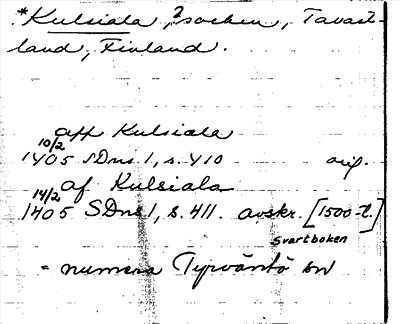 *Kulsiala, ?socken, Tavast-
land, Finland.
aff Kulsiala
10/2
1405 SDns 1, s. 410 orig.
af Kulsiala
14/2
1405 SDns 1, s. 411. avskr. [1500-t.]
Svartboken
= numera Tyrväntö sn